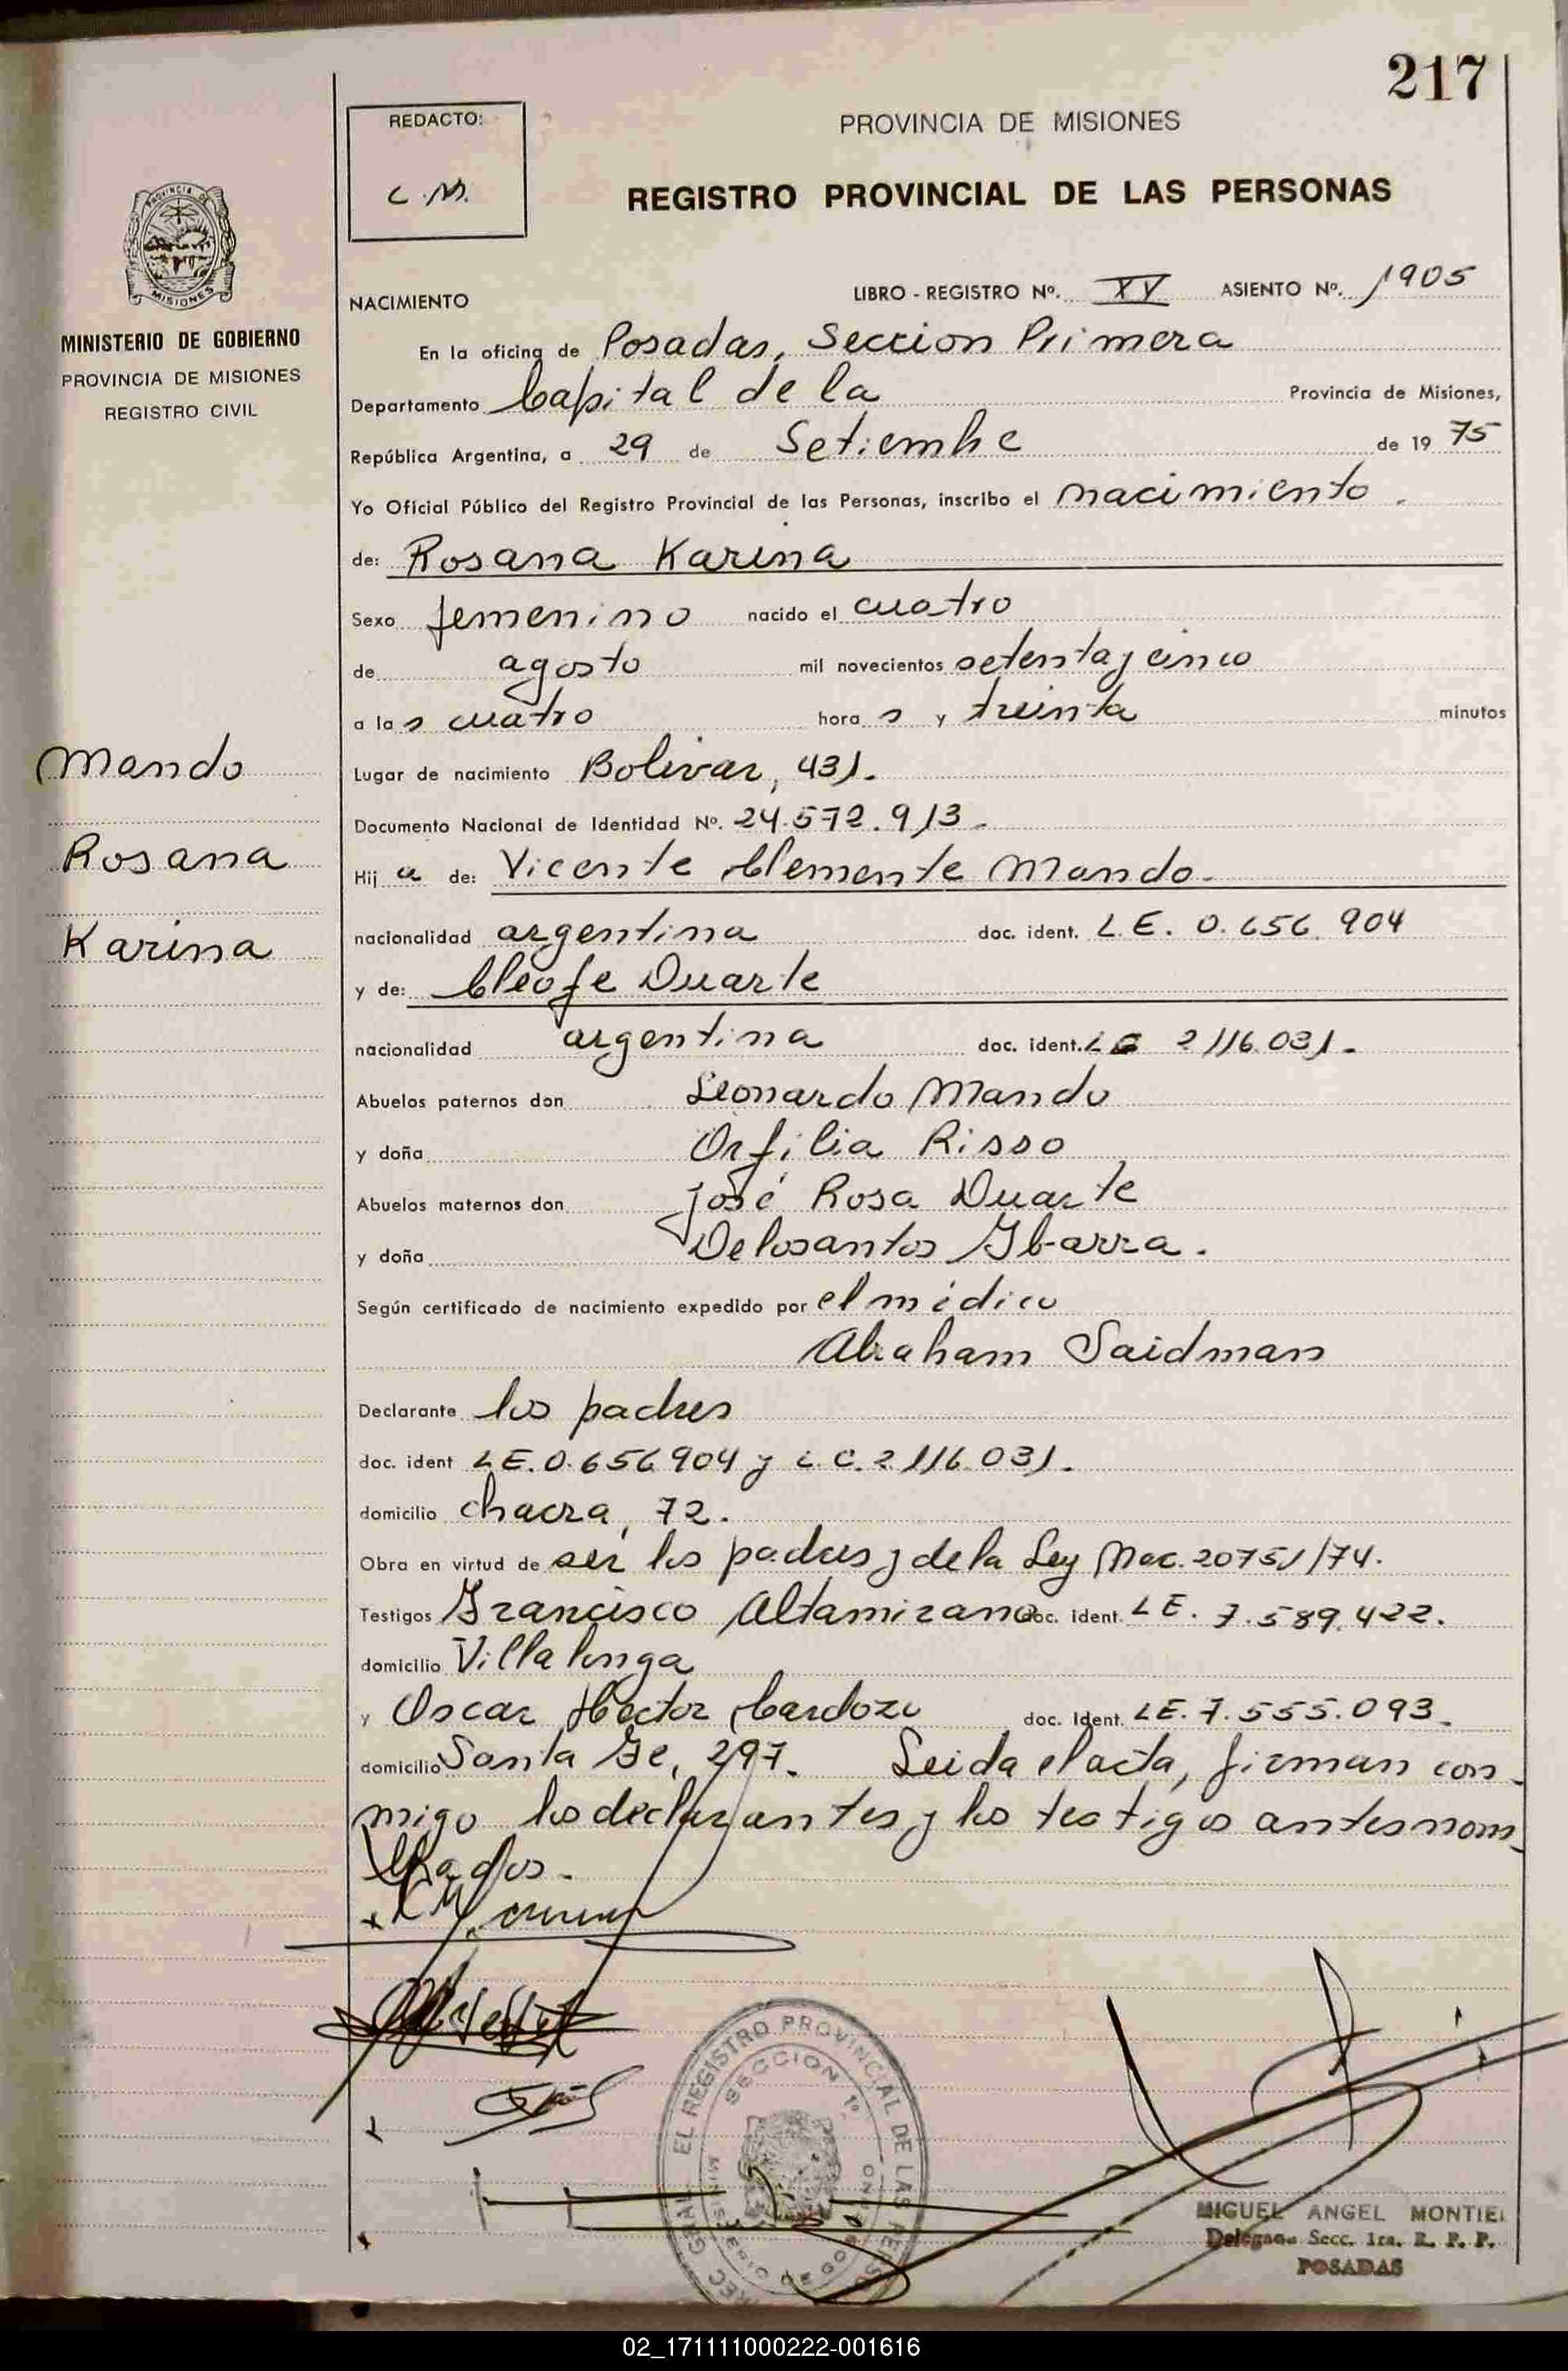 217
REDACTO:
C.M.
PROVINCIA DE MISIONES
REGISTRO PROVINCIAL DE LAS PERSONAS
PROVINCIA DE
MISIONES
MINISTERIO DE GOBIERNO
PROVINCIA DE MISIONES
REGISTRO CIVIL
NACIMIENTO
LIBRO - REGISTRO Nº. XV ASIENTO Nº. 1905
En la oficina de Posadas, Seccion Primera
Departamento Capital de la Provincia de Misiones,
República Argentina, a 29 de Setiembre de 1975
Yo Oficial Público del Registro Provincial de las Personas, inscribo el nacimiento.
de: Rosana Karina
Sexo femenino nacido el cuatro
de agosto mil novecientos setenta y cinco
a las cuatro horas y treinta minutos
Mando
Rosana
Karina
Lugar de nacimiento Bolivar, 431.
Documento Nacional de Identidad Nº. 24.572.913.-
Hija de: Vicente Clemente Mando.
nacionalidad argentina doc. ident. L.E. 0.656.904
y de: Cleofe Duarte
nacionalidad argentina doc. ident. LC 2116.031.-
Abuelos paternos don Leonardo Mando
y doña Orfilia Risso
Abuelos maternos don José Rosa Duarte
y doña Delosantos Ibarra.
Según certificado de nacimiento expedido por el médico
Abraham Saidman
Declarante los padres
doc. ident LE.0.656.904 y L.C.2116.031.
domicilio chacra, 72.
Obra en virtud de ser los padres y de la Ley Nac. 20751/74.
Testigos Francisco Altamirano doc. ident. LE. 7.589.422.
domicilio Villa longa
y Oscar Hector Cardozo doc. Ident. LE. 7.555.093.
domicilio Santa Fe, 297. Leida el acta, firman con-
migo los declarantes y los testigos antes nom-
brados.-
EL REGISTRO PROVINCIAL DE LAS
SECCION 1º
MIGUEL ANGEL MONTIEL
Delegado Secc. 1ra. R. P. P.
POSADAS
02_171111000222-001616